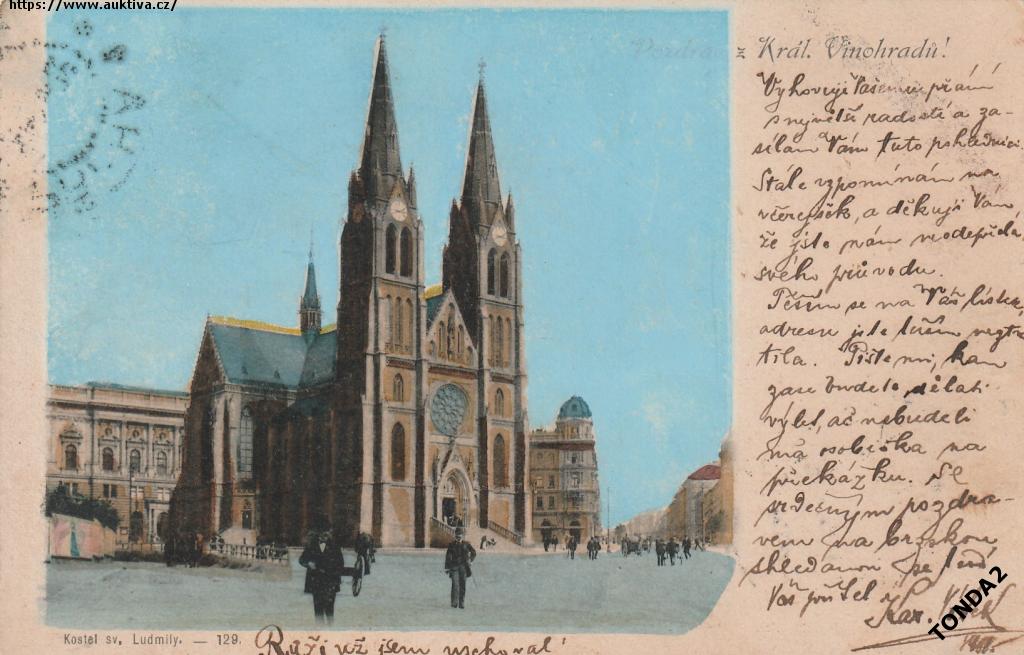 https://www.auktiva.cz/
Pozdrav z Král. Vinohradů!
Vyhovuji Vašemu přání
s největší radostí a za-
sílám Vám tuto pohlednici.
Stále vzpomínám na
včerejšek, a děkuji Vám
že jste nám neodepřela
svého průvodu.
Těším se na Váš lístek,
adresu jste tuším neztra-
tila. Pište mi, kam
zase budete dělati
výlet, ač nebudeli
má osobička na
překážku. Se
srdečným pozdra-
vem na brzskou
shledanou se těší
Váš přítel
Kar.
TONDA2
Kostel sv. Ludmily. — 129.
Růži už jsem uschoval!